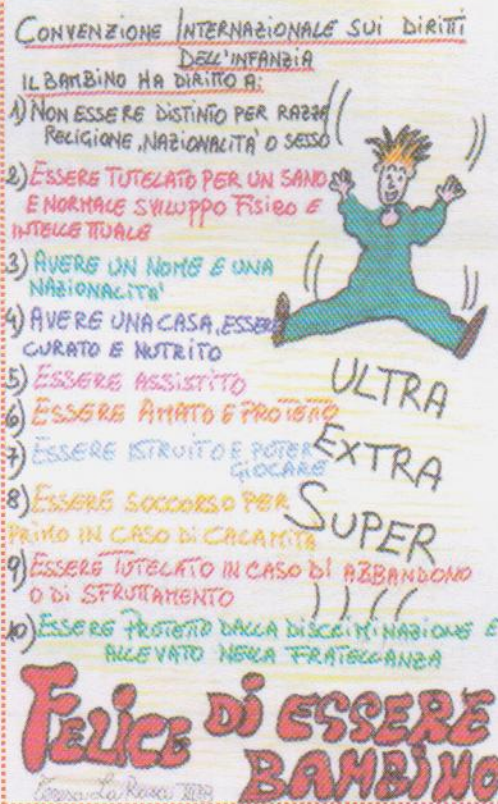 CONVENZIONE INTERNAZIONALE SUI DIRITTI
DELL'INFANZIA
IL BAMBINO HA DIRITTO A:
1) NON ESSERE DISTINTO PER RAZZA
RELIGIONE, NAZIONALITA' O SESSO
2) ESSERE TUTELATO PER UN SANO
E NORMALE SVILUPPO FISICO E
INTELLETTUALE
3) AVERE UN NOME E UNA
NAZIONALITA'
4) AVERE UNA CASA, ESSERE
CURATO E NUTRITO
5) ESSERE ASSISTITO
6) ESSERE AMATO E PROTETTO
7) ESSERE ISTRUITO E POTER
GIOCARE
8) ESSERE SOCCORSO PER
PRIMO IN CASO DI CALAMITÀ
9) ESSERE TUTELATO IN CASO DI ABBANDONO
O DI SFRUTTAMENTO
10) ESSERE PROTETTO DALLA DISCRIMINAZIONE E
ALLEVATO NELLA FRATELLANZA
ULTRA
EXTRA
SUPER
FELICE DI ESSERE
BAMBINO
Teresa La Rocca